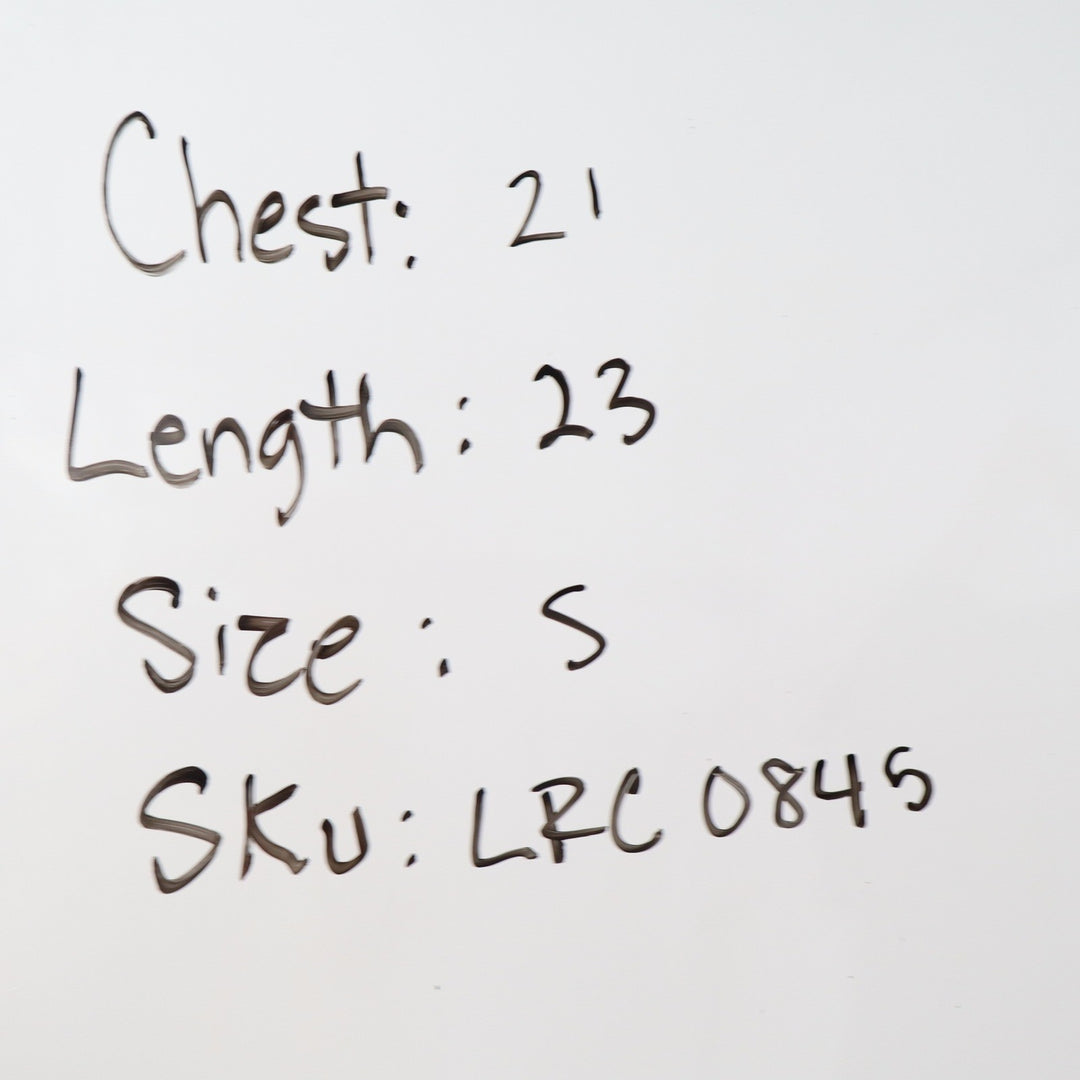 Chest: 21
Length: 23
Size: S
SKu: LRC 0845